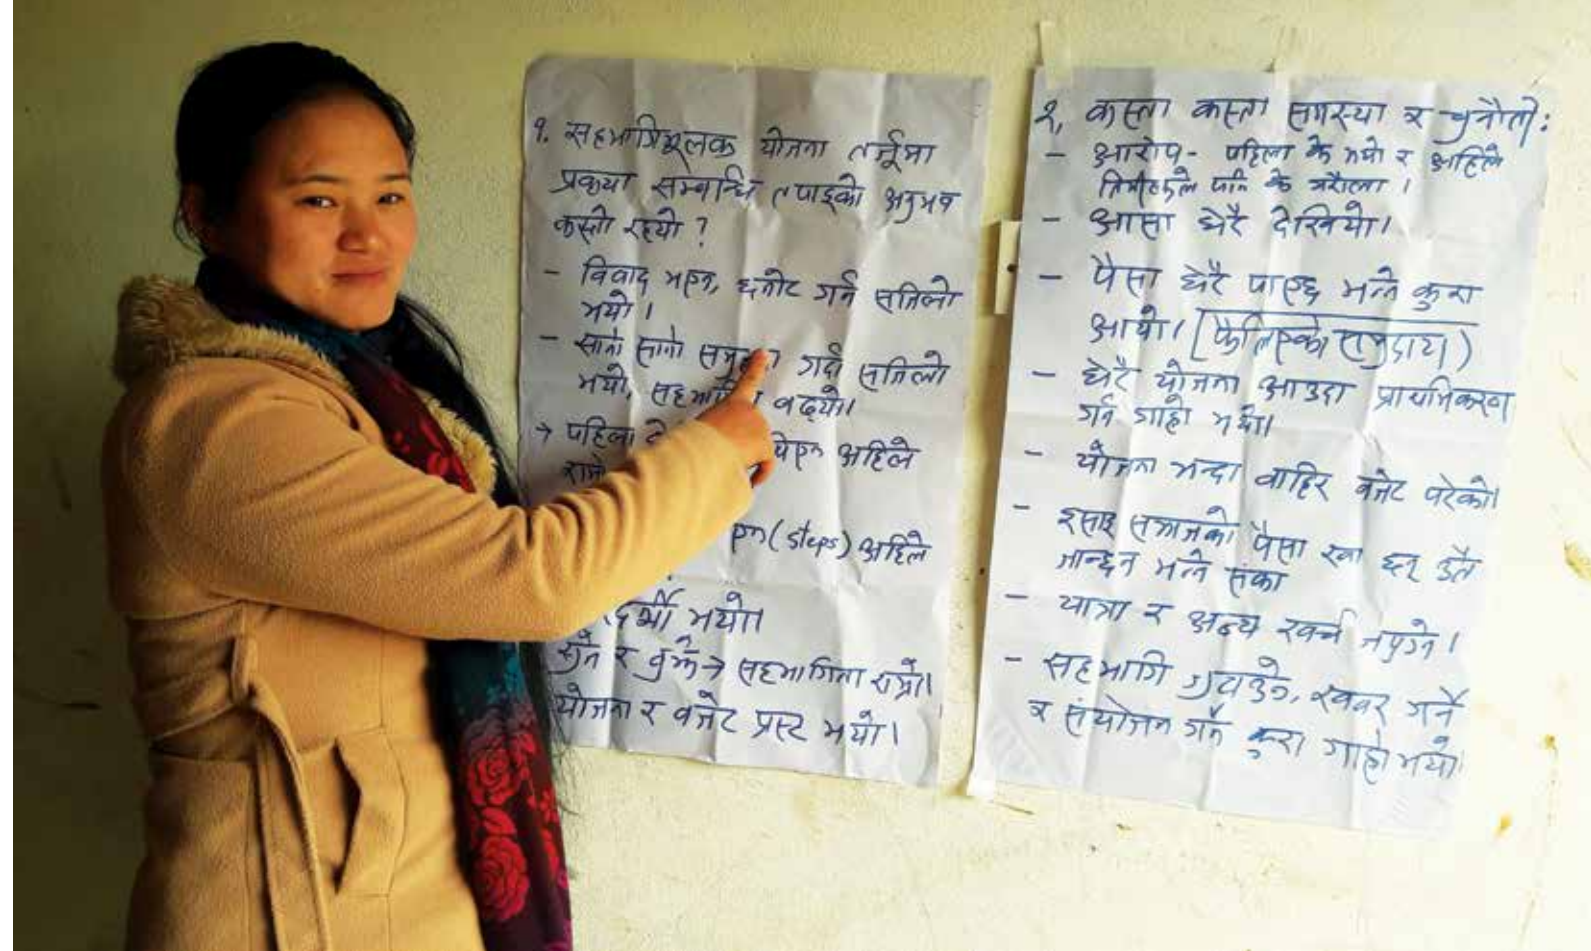 १. सहभागिमूलक योजना तर्जूमा
प्रकृया सम्बन्धि तपाइको अनुभव
कस्तो रहयो ?
- विवाद भएन, छनोट गर्न सजिलो
भयो ।
- सानो सानो समुहमा गर्दा सजिलो
भयो, सहभागिता बढ्यो।
→ पहिला अहिले
(steps) अहिले
भयो।
सुने र वुझे → सहभागिता राम्रो।
योजना र वजेट प्रस्ट भयो।
२. कस्ता कस्ता समस्या र चुनौती:
- आरोप - पहिला के भयो र अहिले
तिमीहरुले पनि के गरौला ।
- आसा धेरै देखियो।
- पैसा धेरै पाएछ भन्ने कुरा
आयो। (फैलिएको समुदाय)
- धेरै योजना आउदा प्राथमिकरण
गर्न गाहो भयो।
- योजना भन्दा वाहिर वजेट परेको।
- इसाइ समाजको पैसा हो
जान्छन भन्ने संका
- यात्रा र अन्य खर्च नपुग्ने ।
- सहभागि जुटाउने, खबर गर्ने
र संयोजन गर्ने कुरा गाहो भयो।